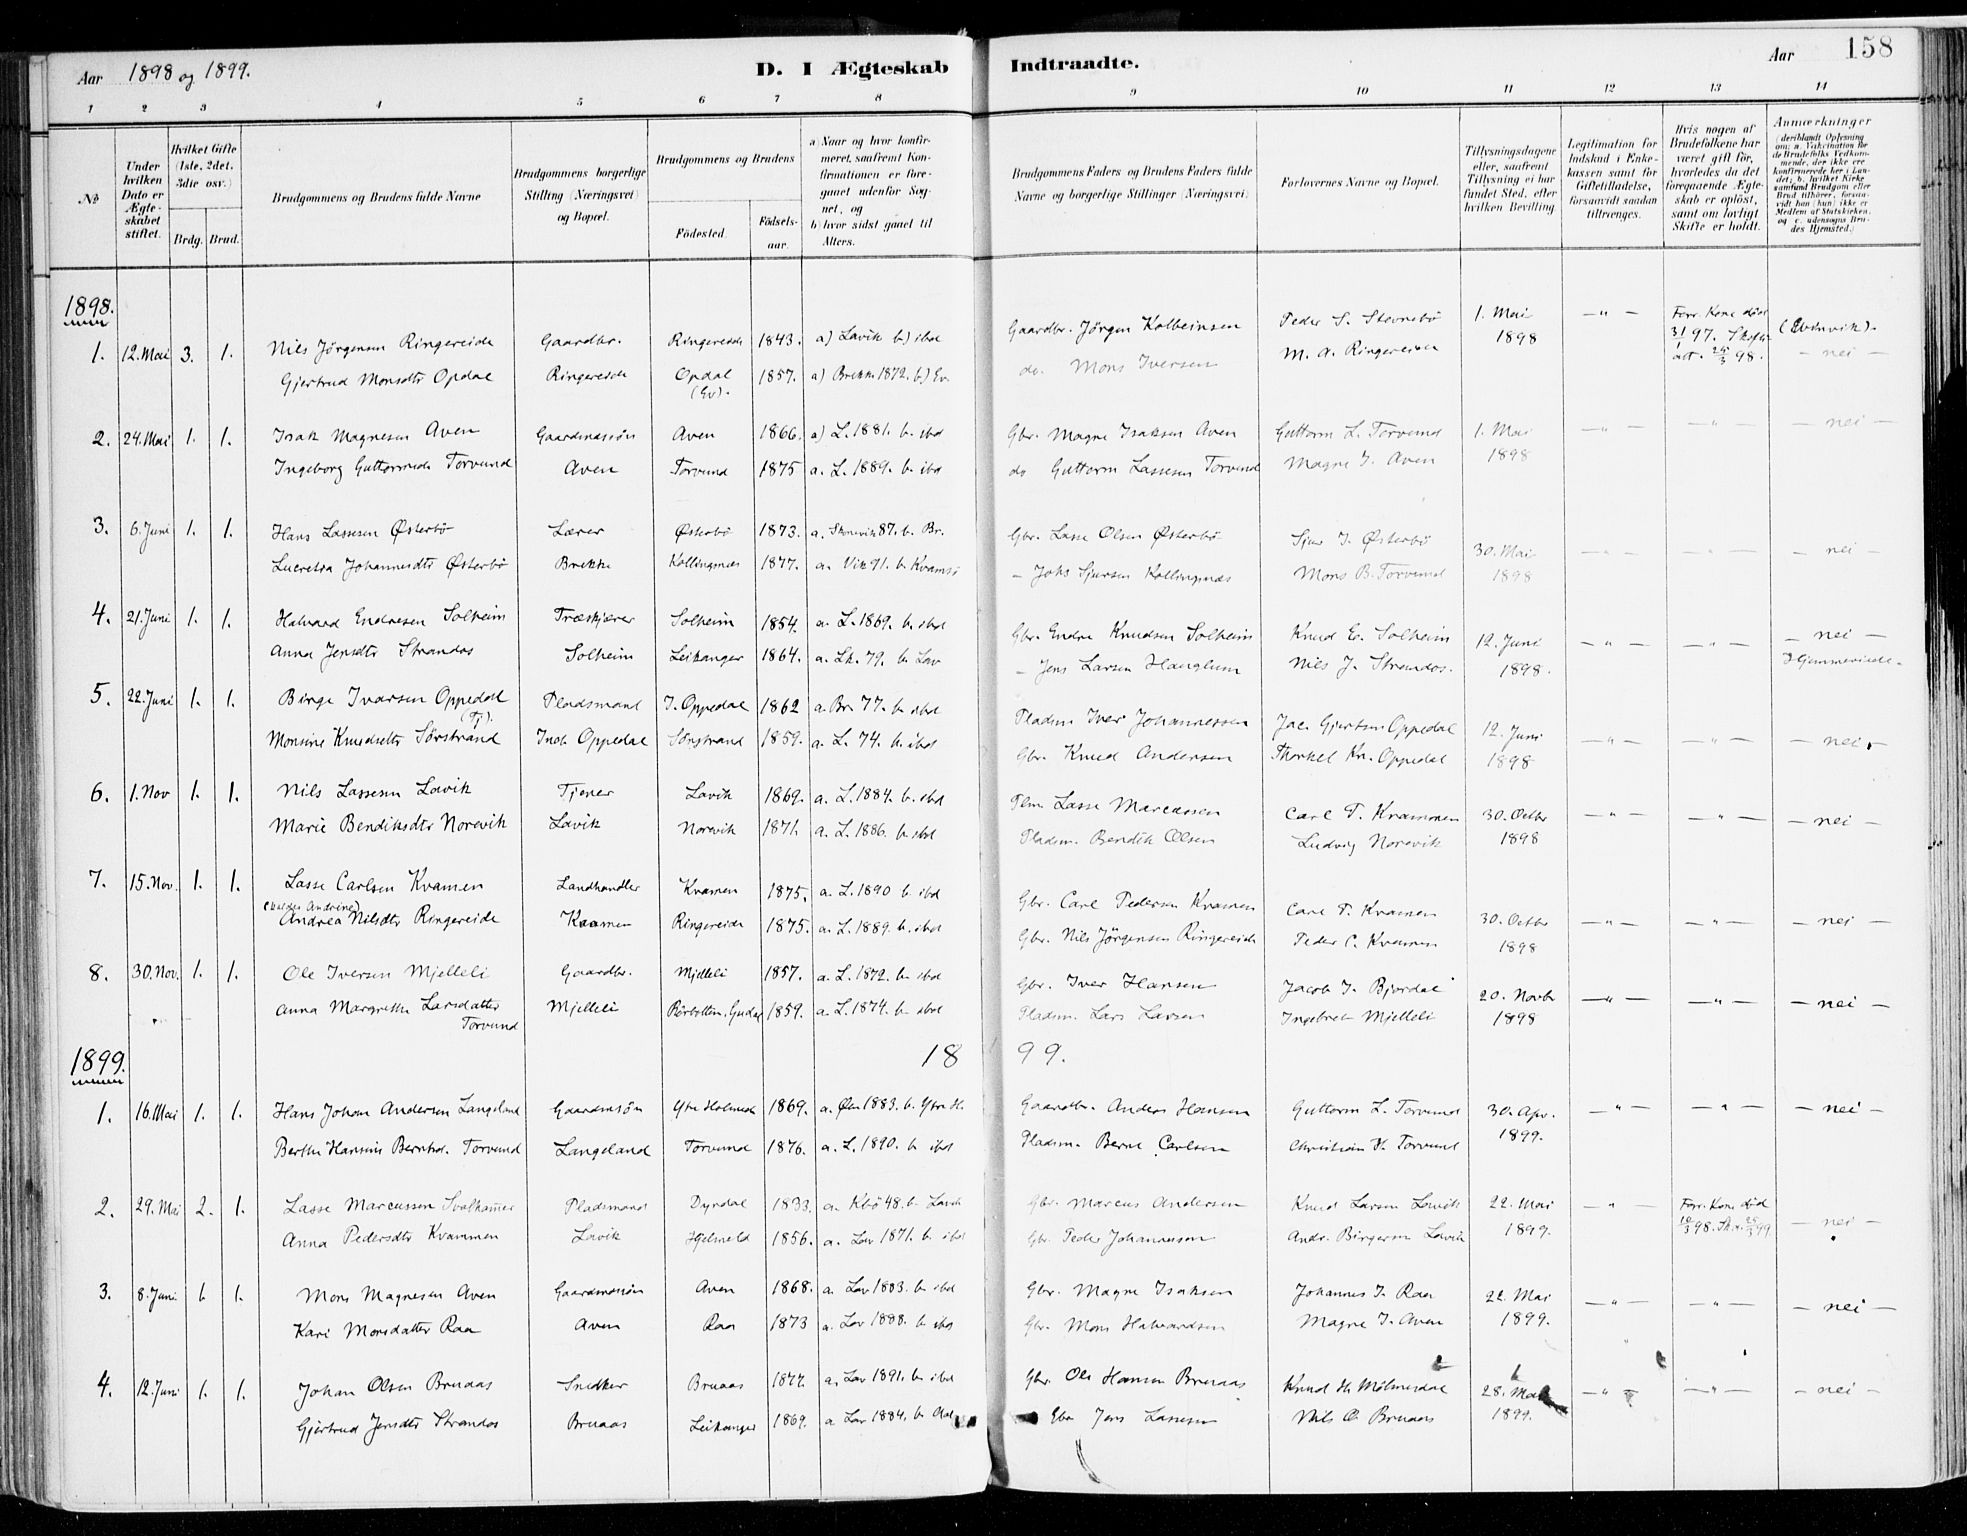 Aar 1898 og 1899. D. I Ægteskab Indtraadte. Aar 158
1 2 3 4 5 6 7 8 9 10 11 12 13 14
№
Under hvilken Dato er Ægteskabet stiftet.
Hvilket Gifte (1ste, 2det, 3die osv.)
Brdg. Brud.
Brudgommens og Brudens fulde Navne
Brudgommens borgerlige Stilling (Næringsvei) og Bopæl.
Brudgommens og Brudens
Födested. Födsels-aar.
a) Naar og hvor konfirmeret, saafremt Konfirmationen er foregaaet udenfor Sognet, og
b) hvor sidst gaaet til Alters.
Brudgommens Faders og Brudens Faders fulde Navne og borgerlige Stillinger (Næringsvei)
Forlovernes Navne og Bopæl.
Tillysningsdagene eller, saafremt Tillysning ei har fundet Sted, efter hvilken Bevilling
Legitimation for Indskud i Enkekassen samt for Giftetilladelse, forsaavidt saadan tiltrænges.
Hvis nogen af Brudefolkene har været gift för, hvorledes da det foregaaende Ægteskab er oplöst, samt om lovligt Skifte er holdt.
Anmærkninger (deriblandt Oplysning om: a. Vakcination for de Brudefolks Vedkommende, der ikke ere konfirmerede her i Landet; b. hvilket Kirkesamfund Brudgom eller Brud tilhörer, forsaavidt han (hun) ikke er Medlem af Statskirken, og c. udensogns Brudes Hjemsted.)
1898.
1. 12. Mai 3. 1. Nils Jörgensen Ringereide Gaardbr. Ringereide 1843. a) Lavik b) ibd Gaardbr. Jörgen Kolbeinsen Peder S. Stevnebö 1. Mai — " — Forr. Kone död (Evenvik).
Gjertrud Monsdtr Opdal Ringereide Opdal (Ev). 1857. a) Brekke 1872. b) Ev. do. Mons Iversen M. A. Ringereide 1898 31/1 97. Skifte att. 24/3 98. — nei —
2. 24. Mai 1. 1. Isak Magnesen Aven Gaardmassön Aven 1866. a) L. 1881. b. ibd Gbr. Magne Isaksen Aven Guttorm L. Torvund 1. Mai — " — — " — — nei —
Ingeborg Guttormsdr Torvund Aven Torvund 1875 a. L. 1889. b. ibd do Guttorm Lassesen Torvund Magne I. Aven 1898
3. 6. Juni 1. 1. Hans Lassesen Østerbö Lærer Østerbö 1873. a. Skonevik 87. b. Br. Gbr. Lasse Olsen Østerbö Sjur J. Østerbö 30. Mai — " — — " — — nei —
Lucretia Johannesdtr Østerbö Brekke Kollingnæs 1877. a. Vik 91. b. Kvamsö — Johs Sjursen Kollingnæs Mons B. Torvund 1898
4. 21. Juni 1. 1. Halvard Endresen Solheim Træskjærer Solheim 1854. a. L. 1869. b. ibd Gbr. Endre Knudsen Solheim Knud E. Solheim 12. Juni — " — — " — — nei —
Anna Jensdtr Strandos Solheim Leikanger 1864. a. Lk. 79. b. Lav — Jens Larsen Hauglum Nils J. Strandos. 1898.
5. 22. Juni 1. 1. Birge Ivarsen Oppedal Pladsmand I. Oppedal 1862 a. Br. 77. b. ibd Pladsm Iver Johannessen Jac. Gjertsen Oppedal 12. Juni — " — — " — — nei. —
Monsine Knudsdtr Sörstrand Indr Oppedal Sörstrand 1859. a. L. 74. b. ibd Gbr. Knud Andersen Thorkel Kn. Oppedal 1898
6. 1. Nov 1. 1. Nils Lassesen Lavik Tjener Lavik 1869. a. L. 1884. b. ibd Plm Lasse Marcussen Carl P. Kvammen 30. Octbr — " — — " — — nei —
Marie Bendiksdtr Norevik Lavik Norevik 1871. a. L. 1886. b. ibd Pladsm. Bendik Olsen Ludvig Norevik 1898
7. 15. Nov. 1. 1. Lasse Carlsen Kvamen Landhandler Kvamen 1875. a. L. 1890 b. ibd Gbr. Carl Pedersen Kvamen Carl P. Kvamen 30. Octbr — " — — " — — nei —
(kaldes Andrine)
Andrea Nilsdtr Ringereide Kvamen Ringereide 1875. a. L. 1889. b. ibd Gbr. Nils Jörgensen Ringereide Peder C. Kvamen 1898
8. 30. Nov. 1. 1. Ole Iversen Mjelleli Gaardbr. Mjelleli 1857. a. L. 1872. b. ibd Gbr. Iver Hansen Jacob J. Bjordal 20. Novbr — " — — " — — nei —
Anna Margrethe Larsdatter Torvund Mjelleli 1859. a. L. 1874. b. ibd Pladsm. Lars Larsen Ingebret Mjelleli 1898
1899. 18 99.
1. 16. Mai 1. 1. Hans Johan Andersen Langeland Gaardmsön Ytre Holmedal 1869. a. 1883. b. Ytre H. Gaardbr. Anders Hansen Guttorm L. Torvund 30. Apr. — " — — " — — nei —
Berthe Hansine Berntsd. Torvund Langeland Torvund 1876. a. L. 1890. b. ibd Pladsm. Bernt Carlsen Christian H. Torvund 1899.
2. 29. Mai 2. 1. Lasse Marcussen Svalhamer Pladsmand Dyrdal 1833. a. Kbö 48. b. Lavik Gbr. Marcus Andersen Knud Larsen Lavik 22. Mai — " — Forr. Kone död
Anna Pedersdtr Kvammen Lavik Hjelmeld 1856. a. Lav 1871. b. ibd Gbr. Peder Johannesen Andr. Birgersen Lavik 1899. 98. Sk. a. 99. — nei —
3. 8. Juni 1. 1. Mons Magnesen Aven Gaardmassön Aven 1868. a. Lav 1883. b. ibd Gbr. Magne Isaksen Johannes J. Raa 22. Mai — " — — " — — nei —
Kari Monsdatter Raa Aven Raa 1873 a. Lav 1888. b. ibd Gbr. Mons Halvardsen Magne I. Aven 1899.
4. 12. Juni 1. 1. Johan Olsen Bruaas Snedker Bruaas 1877. a. Lav 1891. b. ibd Gbr. Ole Hansen Bruaas Knud H. Mølmesdal 28. Mai — " — — " — — nei —
Gjertrud Jensdtr Strandos Bruaas Leikanger 1869. a Lav 1884. b. Gbr Jens Lassesen Nils O. Bruaas 1899.